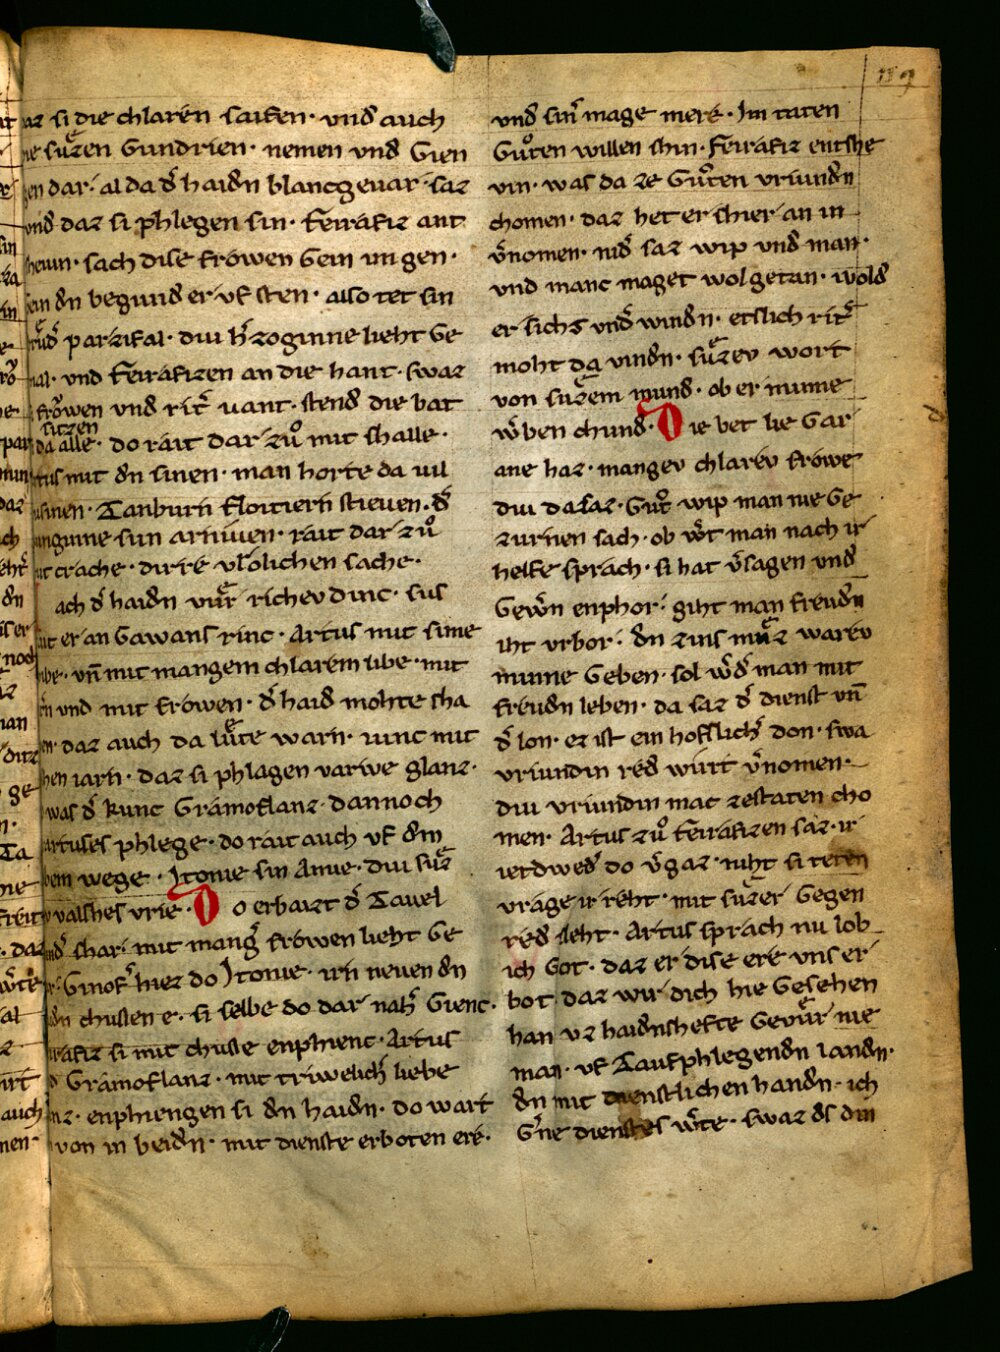 119
si die chlaren saken · vnd auch
suͤzen Gundrien · nemen vnd Gien
dar · al da d͛ haidn blancgeuar · saz
vnd daz si phlegen sin · feirafiz ant
sach dise froͤwen Gein im gen ·
dn begund er vf sten · also tet sin
parzifal · diu h͛zoginne lieht Ge
vnd feirafizen an die hant · swaz
froͤwen vnd rit͛ uant · stend die bat
sitzen
da alle · do rait dar zuͦ mit shalle ·
mit dn sinen · man horte da uil
Tanburn floitiern stieuen · d͛
sun arniuen · rait dar zuͦ
crache · dirre vlolichen sache ·
ach d͛ haidn vuͤr richev dinc · sus
er an Gawans rinc · Artus mit sime
vn̄ mit mangem chlarem libe · mit
vnd mit froͤwen · d͛ haid mohte sha
daz auch da luͤte warn · iunc mit
iarn · daz si phlagen varwe glanz ·
was d͛ kunc Gramoflanz · dannoch
artuses phlege · do rait auch vf dem
wege · Jtonie sin Amie · diu suͤz
valshes vrie · Do erbaizt d͛ Tauel
shar · mit mang͛ froͤwen lieht Ge
Ginof͛ hiez do Jtonie · irn neuen dn
chussen e · si selbe do dar nah͛ Gienc ·
si mit chusse enphienc · Artus
Gramoflanz · mit triwelich͛ liebe
enphiengen si dn haidn · do wart
von in beidn · mit dienste erboten ere ·
vnd sin͛ mage mere · Im taten
Guͦten willen shin · Feirafiz entshe
vin · was da ze Guͦten vriundn
chomen · daz het er shier an in
v͛nomen · nid͛ saz wip vnd man ·
vnd manc maget wol getan · wold
er sichs vnd͛ windn · etslich rit͛
moht da vindn · suͤzev wort
von suͤzem mund · ob er minne
w͛ben chund · Die bet lie Gar
ane haz · mangev chlarev froͤwe
diu da saz · Guͦt wip man nie Ge
zurnen sach · ob w͛t man nach ir
helfe sprach · si hat v͛sagen vnd
Gew͛n enphor · giht man freudn
iht vrbor · dn zins muͤz warev
minne Geben · sol w͛d man mit
freudn leben · da saz d͛ dienst vn̄
d͛ lon · ez ist ein hofflich͛ don · swa
vriundin red wirt v͛nomen ·
diu vriundin mac zestaten cho
men · Artus zuͦ feirafizen saz · ir
ietdwed͛ do v͛gaz · niht si teten
vrage ir reht · mit suͤzer Gegen
red sleht · Artus sprach nu lob
ich Got · daz er dise ere vns er
bot · daz wir dich hie Gesehen
han · vz haidnshefte Gevuͤr nie
man · vf Taufphlegendn landn ·
dn mit dienstlichen handn · ich
G͛ne dienstes w͛te · swaz ds din